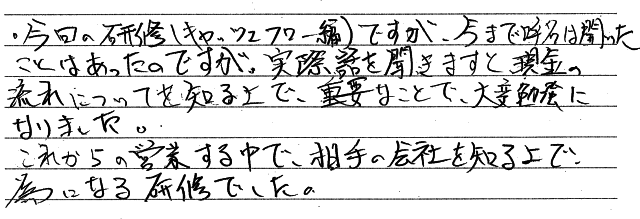 ・今回の研修(キャッシュフロー編)ですが、今まで呼名は聞いた
ことはあったのですが。実際話を聞きますと現金の
流れについてを知る上で、重要なことで、大変勉強に
なりました。
これからの営業する中で、相手の会社を知る上で、
為になる研修でした。